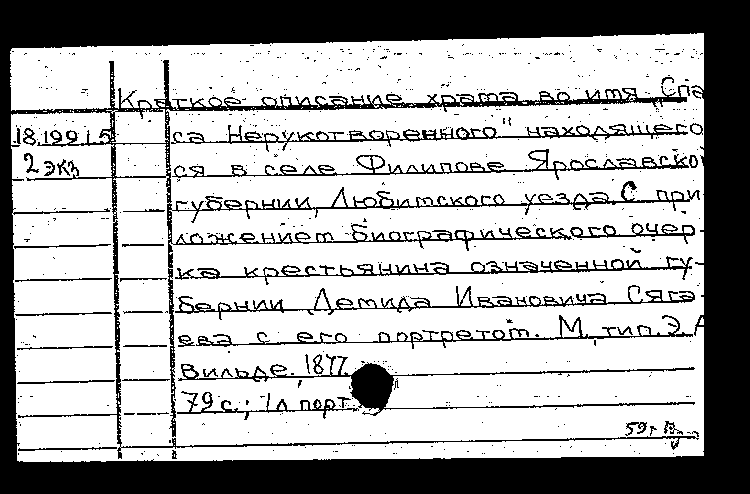 Краткое описание храма во имя „Спа
18.199 1.5 са Нерукотворенного" находящего
2 экз ся в селе Филипове Ярославской
губернии, Любимского уезда. С при-
ложением биографического очер-
ка крестьянина означенной гу-
бернии Демида Ивановича Сяга-
ева с его портретом. М, тип. Э. А
Вильде, 1877.
79 с.; 1 л порт.
59г